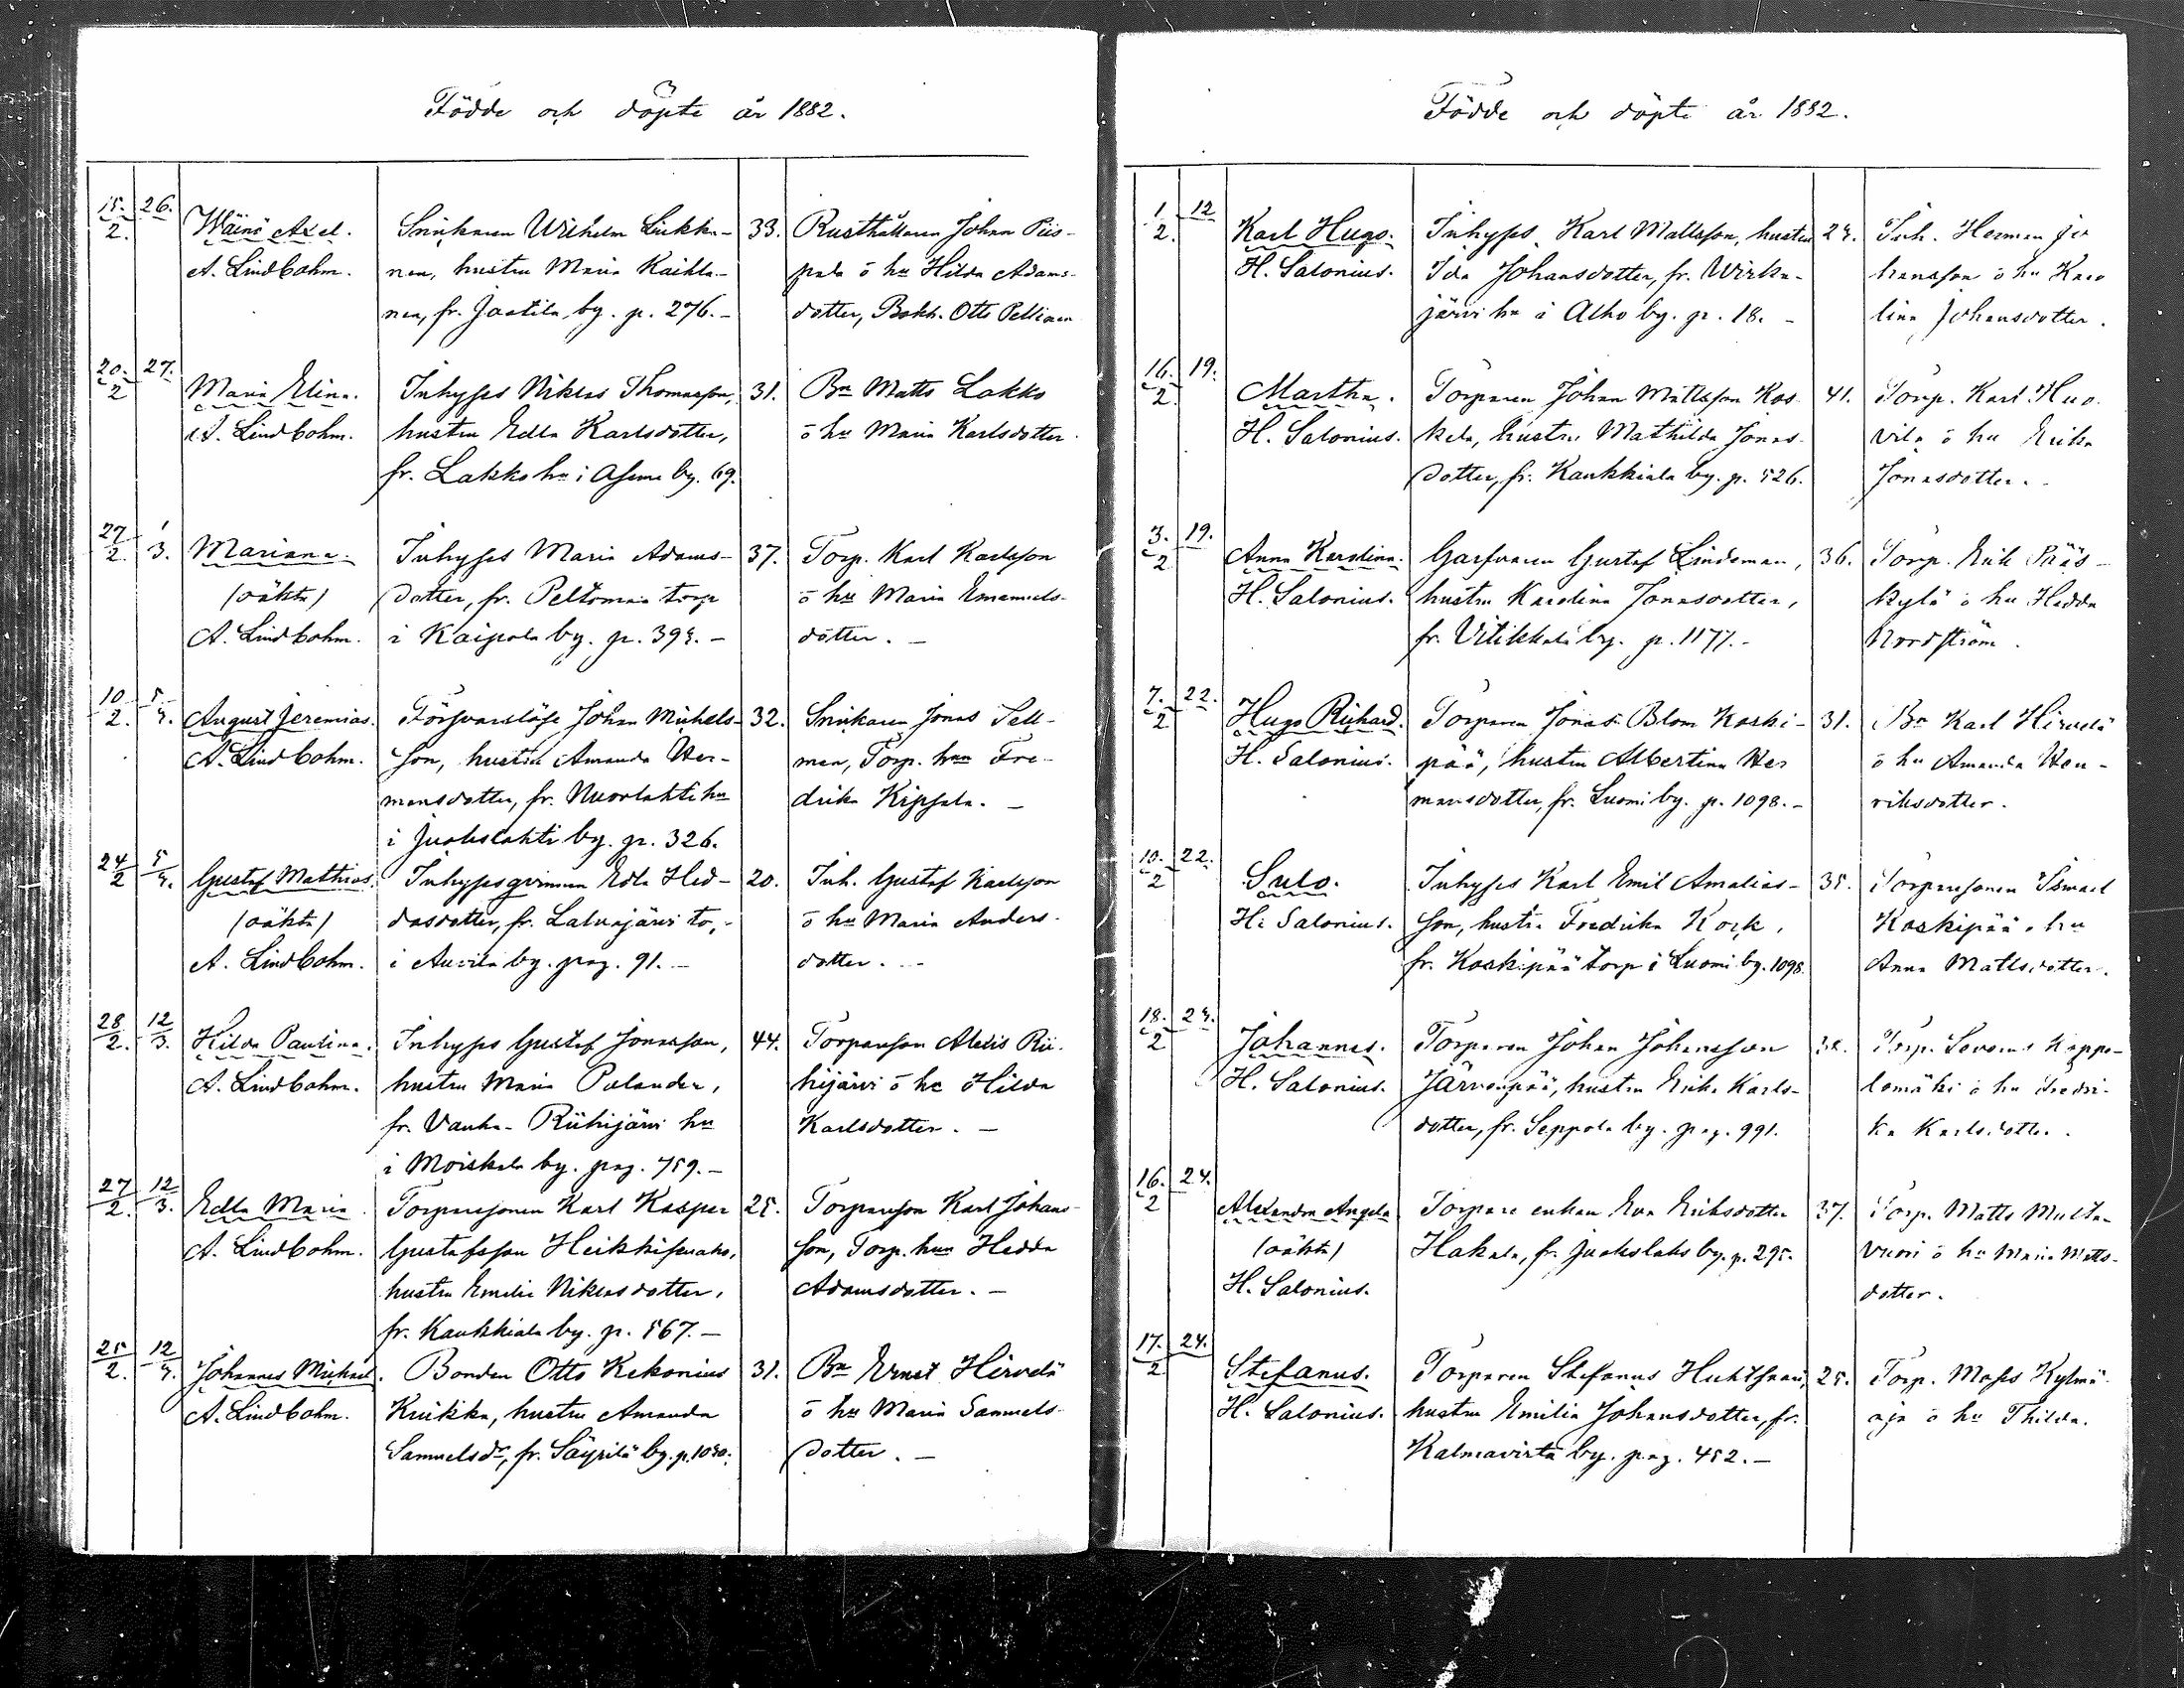 Födde och döpte år 1882.
15. 26.
2.
Wäinö Axel.
A. Lindbohm.
Snickaren Wilhelm Liukko-
nen, hustru Maria Kaihla-
nen, fr. Jaatila by. p. 276. -
33.
Rusthållaren Johan Piis-
pala o hu Hilda Adams-
dotter, Bokh. Otto Pellinen
20. 27.
2
Maria Elina.
A. Lindbohm.
Inhyses Niklas Thomasson,
hustru Edla Karlsdotter,
fr. Lakko hn i Aseme by. 69.
31.
Bn Matts Lakko
o hu Maria Karlsdotter.
27 1
2. 3.
Mariana.
(oäkta)
A. Lindbohm.
Inhyses Maria Adams-
dotter, fr. Peltomaa torp
i Kaipola by. p. 394. -
37.
Torp. Karl Karlsson
o hu Maria Emanuels-
dotter. -
10 5
2. 3.
August Jeremias.
A. Lindbohm.
Försvarslöse Johan Michels-
son, hustru Amanda Her-
mansdotter, fr. Nuorlahti hn
i Juokslahti by. p. 326.
32.
Snickaren Jonas Sell-
man, Torp. hun Fre-
drika Kipsala. -
24 5
2 3.
Gustaf Mathias.
(oäkta)
A. Lindbohm.
Inhysesqvinnan Edla Hed-
dasdotter, fr. Lalvajärvi to,-
i Auvila by. pag. 91. -
20.
Inh. Gustaf Karlsson
o hu Maria Anders-
dotter. -
28 12
2. 3.
Hilda Paulina.
A. Lindbohm.
Inhyses Gustaf Jonasson,
hustru Maria Polander,
fr. Vanha-Riihijärvi hn
i Moiskala by. pag. 759. -
44.
Torparson Alexis Rii-
hijärvi o hu Hilda
Karlsdotter. -
27 12
2. 3.
Edla Maria.
A. Lindbohm.
Torparsonen Karl Kasper
Gustafsson Heikkisenaho,
hustru Emilia Niklasdotter,
fr. Kaukkiala by. p. 567. -
25.
Torparson Karl Johans-
son, Torp. hun Hedda
Adamsdotter. -
25 12
2. 3.
Johannes Michael.
A. Lindbohm.
Bonden Otto Kekonius
Krikka, hustru Amanda
Samuelsdr, fr. Säyrilä by. p. 1030.
31.
Bn Ernst Hirvelä
o hu Maria Samuels-
dotter. -
Födde och döpte år 1882.
1 12
2.
Karl Hugo.
H. Salonius.
Inhyses Karl Mattsson, hustru
Ida Johansdotter, fr. Wirka-
järvi hn i Alho by. p. 18. -
24.
Inh. Herman Jo
hansson o hu Karo
lina Johansdotter.
16. 19.
2.
Martha.
H. Salonius.
Torparen Johan Mattsson Kos-
kela, hustru Mathilda Jonas-
dotter, fr. Kaukkiala by. p. 526.
41.
Torp. Karl Huo-
vila o hu Erika
Jonasdotter.
3. 19.
2
Anna Karolina.
H. Salonius.
Garfvaren Gustaf Lindeman,
hustru Karolina Jonasdotter,
fr. Vitikkala by. p. 1177. -
36.
Torp. Erik Pääs-
kylä o hu Hedda
Nordström.
7. 22.
2
Hugo Richard.
H. Salonius.
Torparen Jonas Blom Koski-
pää, hustru Albertina Her
mansdotter, fr. Luomi by. p. 1098. -
31.
Bn Karl Hirvelä
o hu Amanda Hen-
riksdotter.
10. 22.
2
Sulo.
H. Salonius.
Inhyses Karl Emil Amalias-
son, hustru Fredrika Kock,
fr. Koskipää torp i Luomi by. 1098.
35.
Torparsonen Ismael
Koskipää o hu
Anna Mattsdotter.
18. 24.
2
Johannes.
H. Salonius.
Torparen Johan Johansson
Järvenpää, hustru Erika Karls-
dotter, fr. Seppola by. pag. 991.
Torp. Severus Koppe-
lomäki o hu Fredri-
ka Karlsdotter.
16. 24.
2
Alexandra Angela
(oäkta)
H. Salonius.
Torpare enkan Eva Eriksdotter
Hakala, fr. Juokslaks by. p. 295.
37.
Torp. Matts Musta-
vuori o hu Maria Matts-
dotter.
17. 24.
2
Stefanus.
H. Salonius.
Torparen Stefanus Huhtsaari,
hustru Emilia Johansdotter, fr.
Kalmavirta by. pag. 452. -
25.
Torp. Moses Kylmä-
oja o hu Thilda.